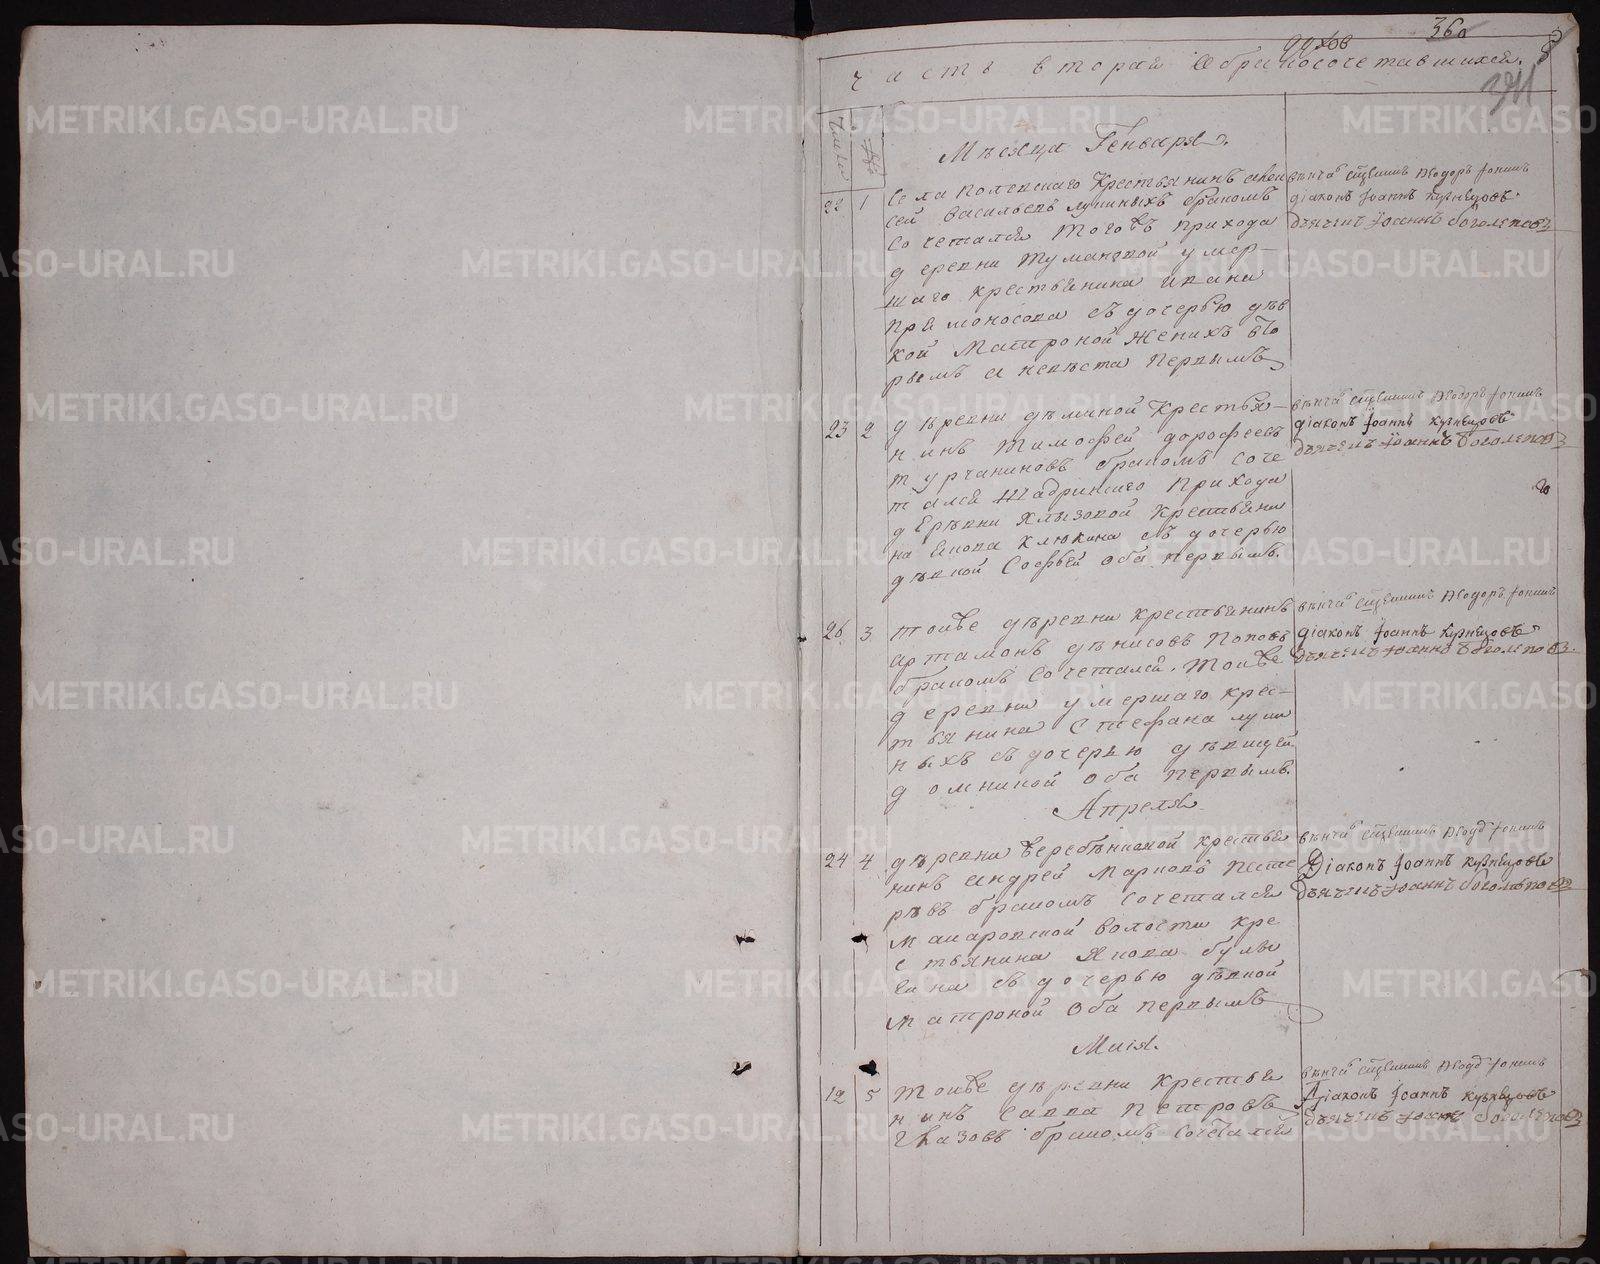 360
часть вторая о бракосочетавшихся.
Число
№
Мѣсяца Генваря
22 1 Села Полевскаго Крестьянинъ Алек
сей Васильевъ Луиныхъ бракомъ
сочетался тогожъ прихода
деревни Туманской умер-
шаго крестьянина Ивана
съ дочерью дѣв
кой Матроной женихъ вто
рымъ а невѣста первымъ
вѣнча Священникъ Ѳеодоръ
діаконъ Іоаннъ Кузнецовъ
дьячекъ Іоаннъ Боголеповъ
23 2 дѣревни крестья-
нинъ Тимофей Дорофеевъ
Турчаниновъ бракомъ соче
тался Шадринскаго прихода
деревни крестьяни
на Якова Клюкина съ дочерью
дѣвкой Софьей оба первымъ.
вѣнча Священникъ Ѳеодоръ
діаконъ Іоаннъ Кузнецовъ
дьячекъ Іоаннъ Боголеповъ
26 3 тоиже дѣревни крестьянинъ
Артамонъ Дѣнисовъ Поповъ
бракомъ сочетался. тоиже
деревни умершаго крес-
тьянина Стефана Луи
ныхъ съ дочерью дѣвицей
Домникой оба первымъ.
вѣнча Священникъ Ѳеодоръ
діаконъ Іоаннъ Кузнецовъ
дьячекъ Іоаннъ Боголеповъ
Апреля
24 4 дѣревни крестья
нинъ Андрей Марковъ Пете
ревъ бракомъ сочетался
Макаровской волости кре
стьянина Якова
съ дочерью дѣвкой
Матроной оба первымъ
вѣнча Священникъ Ѳеод
Діаконъ Іоаннъ Кузнецовъ
дьячекъ Іоаннъ Боголеповъ
Маія.
12 5 тоиже дѣревни крестья
нинъ Савва Петровъ
Глазовъ бракомъ сочетался
вѣнча Священникъ Ѳеод
Діаконъ Іоаннъ Кузнецовъ
дьячекъ Іоаннъ Боголеповъ
METRIKI.GASO-URAL.RU